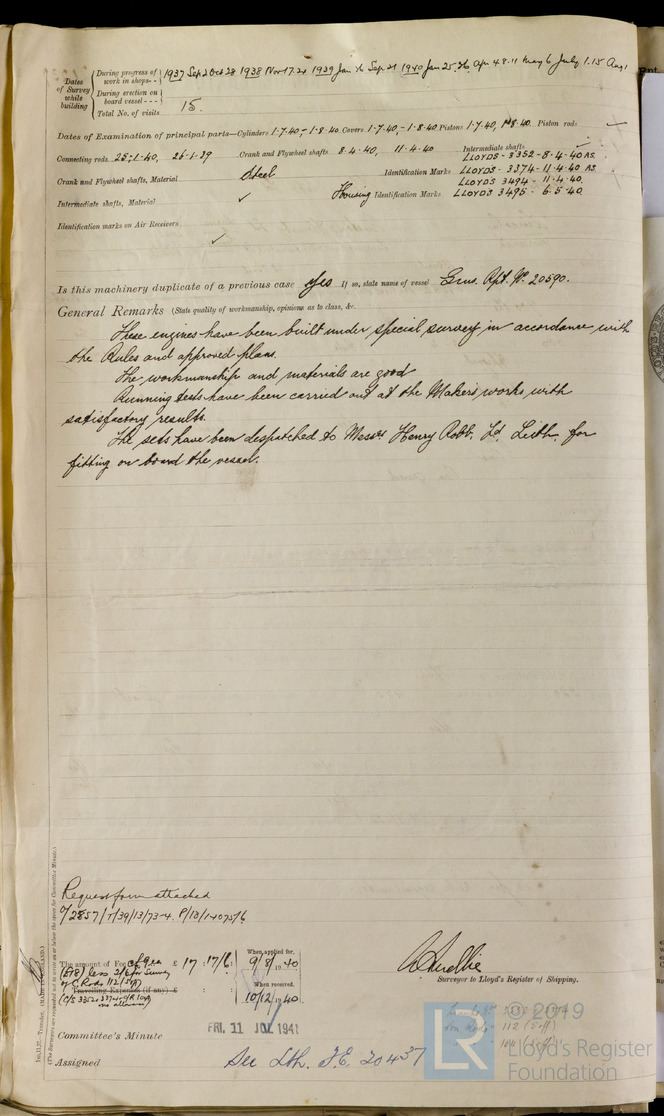 Dates of Survey while building
During progress of work in shops - - 1937 Sep 2 Oct 28 1938 Nov 17. 24 1939 Jan 16 Sep 21 1940 Jan 25. 26. Apr 4. 8. 11 May 6 July 1. 15 Aug 1
During erection on board vessel - - -
Total No. of visits 15.
Dates of Examination of principal parts—Cylinders 1-7-40,-1-8-40. Covers 1-7-40,-1-8-40 Pistons 1-7-40, 1-8-40. Piston rods ✓
Connecting rods 25-1-40, 26-1-39 Crank and Flywheel shafts 8-4-40, 11-4-40 Intermediate shafts ✓
Crank and Flywheel shafts, Material Steel Identification Marks LLOYDS - 3352-8-4-40 AS.
LLOYDS - 3374-11-4-40 AS
Intermediate shafts, Material ✓ Housing Identification Marks LLOYDS 3494 - 11-4-40.
LLOYDS 3495 - 6-5-40.
Identification marks on Air Receivers
✓
Is this machinery duplicate of a previous case yes If so, state name of vessel Grms. Rpt. No. 20590.
General Remarks (State quality of workmanship, opinions as to class, &c.
These engines have been built under special survey in accordance with
the Rules and approved plans.
The workmanship and materials are good
Running tests have been carried out at the Makers works with
satisfactory results.
The sets have been despatched to Messrs Henry Robb, Ld. Leith, for
fitting on board the vessel.
Request form attached
The amount of Fee £ 17 : 17/6 :
less Survey
of C Rods 112 (SFf)
Travelling Expenses (if any) £
When applied for, 9/8/1940
When received, 10/12/1940
Surveyor to Lloyd's Register of Shipping.
Committee's Minute FRI. 11 JUL 1941
Assigned See Lth. F.E. 20437
© 2019
Lloyd's Register
Foundation